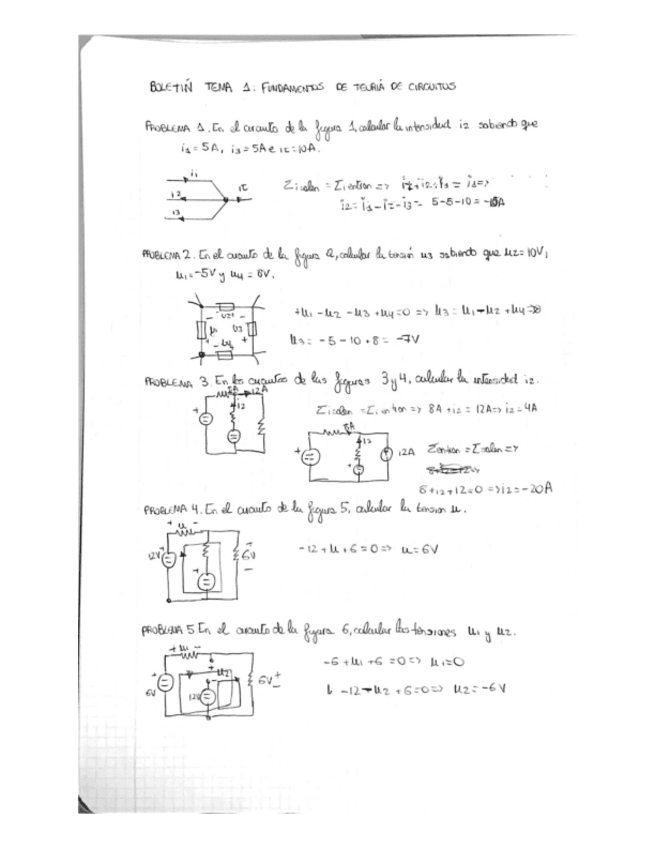 BOLETIÑ TEMA 1: FUNDAMENTOS DE TEORIA DE CIRCUITOS
PROBLEMA 1. En el circuito de la figura 1, calcular la intensidad i2 sabiendo que
i1 = 5A, i3 = 5A e iz = 10A.
i1
i2
i3
Σ i salen = Σ i entran =>
i2 = i1 - iz - i3 = 5-5-10 =
PROBLEMA 2. En el circuito de la figura 2, calcular la tensión u3 sabiendo que u2 = 10V,
u1 = -5V y u4 = 8V.
+u1 - u2 - u3 + u4 = 0 => u3 = u1 - u2 + u4
u3 = -5 - 10 + 8 = -7V
PROBLEMA 3. En los circuitos de las figuras 3 y 4, calcular la intensidad i2.
8A 12A
i2
Σ i salen = Σ i entran => 8A + i2 = 12A => i2 = 4A
8A
i2
12A
Σ entran = Σ salen =>
8 + i2 + 12 = 0 => i2 = -20A
PROBLEMA 4. En el circuito de la figura 5, calcular la tension u.
+ u -
12V
+
6V
-
-12 + u + 6 = 0 => u = 6V
PROBLEMA 5 En el circuito de la figura 6, calcular las tensiones u1 y u2.
+ u1 -
u2
6V
12V
6V
-6 + u1 + 6 = 0 => u1 = 0
-12 - u2 + 6 = 0 => u2 = -6V